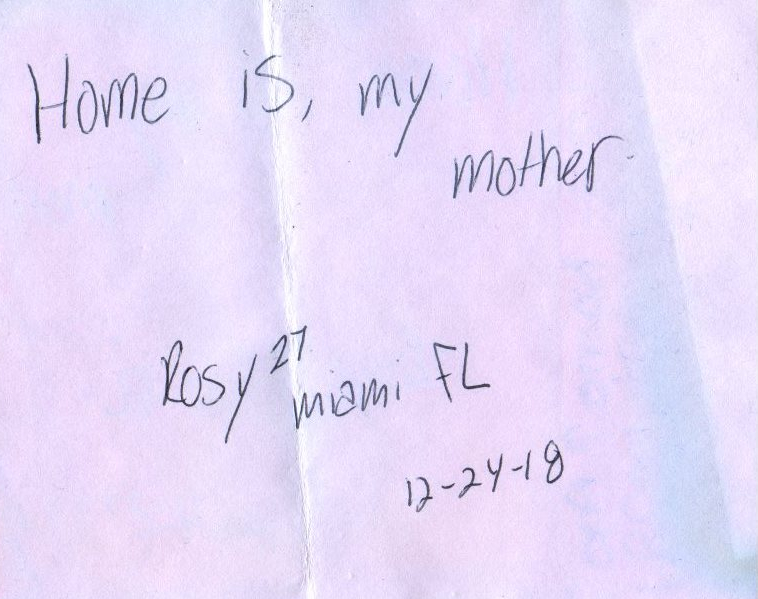 Home is, my
mother
Rosy 27
miami FL
12-24-18